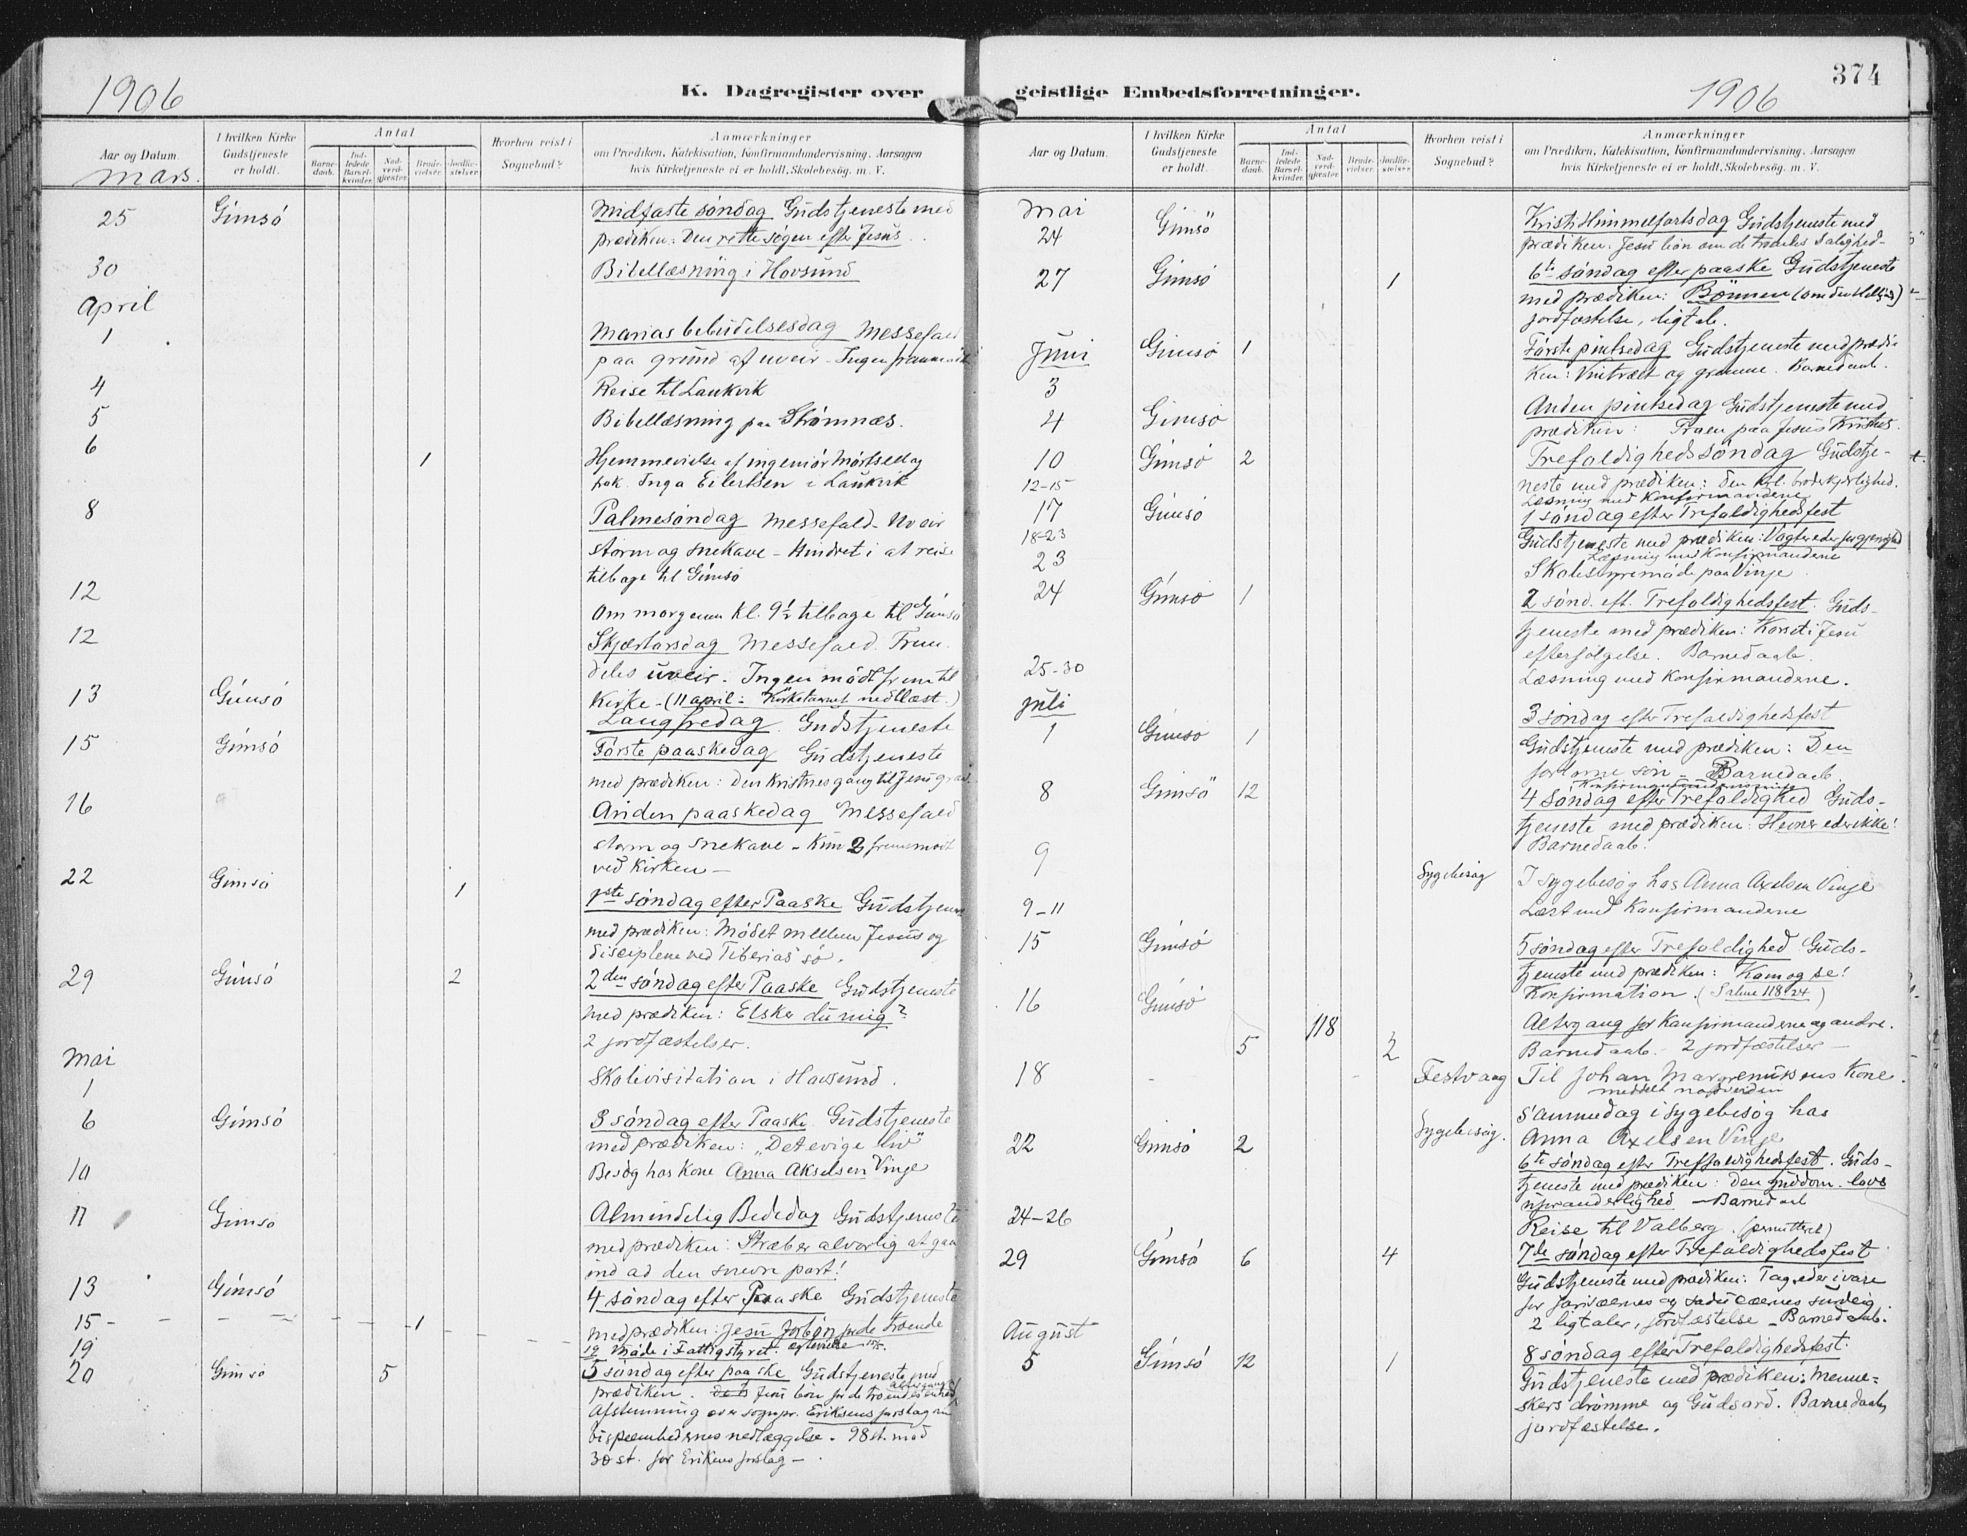 1906
K. Dagregister over
Aar og Datum.
I hvilken Kirke Gudstjeneste er holdt.
Antal
Barne-daab.
Ind-ledede Barsel-kvinder.
Nad-verd-gjæster.
Brude-vielser.
Jordfæ-stelser.
Hvorhen reist i Sognebud?
Anmærkninger
om Prædiken, Katekisation, Konfirmandundervisning, Aarsagen
hvis Kirketjeneste ei er holdt, Skolebesøg. m. V.
Mars.
25 Gimsö Midfaste söndag Gudstjeneste med
prædiken: Den rette sögen efter Jesus
30 Bibellæsning i Hovsund
April
1 Marias bebudelsesdag Messefald
paa grund af uveir - Ingen
4 Reise til Laukvik
5 Bibellæsning paa Strömnæs.
6 1 Hjemmevielse af ingeniör
Inga Eilertsen i Laukvik
8 Palmesöndag Messefald - Uveir
storm og snekave - Hindret i at reise
tilbage til Gimsö
12 Om morgenen kl. 9½ tilbage til Gimsö
12 Skjærtorsdag Messefald. Frem
deles uveir. Ingen mödt frem til
Kirke - (11 april: Kirketaarnet nedblæst.)
13 Gimsö Langfredag. Gudstjeneste
15 Gimsö Förste paaskedag Gudstjeneste
med prædiken: Den Kristnes gang til Jesu grav
16 Anden paaskedag Messefald
storm og snekave - Kun 2 fremmödt
ved Kirken -
22 Gimsö 1 1ste söndag efter Paaske Gudstjeneste
med prædiken: Mödet mellem Jesus og
disciplene ved Tiberias sö.
29 Gimsö 2 2den söndag efter Paaske Gudstjeneste
med prædiken: Elsker du mig?
2 jordfæstelser.
Mai
1 Skolevisitation i Hovsund.
6 Gimsö 3 söndag efter Paaske Gudstjeneste
med prædiken: "Det evige liv"
10 Besög hos Kone Anna Akselsen Vinje
11 Gimsö Almindelig Bededag Gudstjeneste
med prædiken: Stræber alvorlig at gaa
ind ad den snevre port!
13 Gimsö 4 söndag efter Paaske Gudstjeneste
15 - 1 med prædiken: Jesu Forbön for de troende
19 19 Möde i Fattigstyret.
20 Gimsö 5 5 söndag efter paaske Gudstjeneste med
prædiken. Jesu bön for de troendes enhed
Altergang
Afstemning over sognepr. Eriksens forslag om
bispeembedernes nedlæggelse. 98 st. mod
30 st. for Eriksens forslag -
374
1906
geistlige Embedsforretninger.
Aar og Datum.
I hvilken Kirke Gudstjeneste er holdt.
Antal
Barne-daab.
Ind-ledede Barsel-kvinder.
Nad-verd-gjæster.
Brude-vielser.
Jordfæ-stelser.
Hvorhen reist i Sognebud?
Anmærkninger
om Prædiken, Katekisation, Konfirmandundervisning, Aarsagen
hvis Kirketjeneste ei er holdt, Skolebesøg. m. V.
Mai
24 Gimsö Kristi Himmelfartsdag Gudstjeneste med
prædiken: Jesu bön om de troendes Salighed -
27 Gimsö 1 6te söndag efter paaske Gudstjeneste
med prædiken: Bönnen
jordfæstelse, ligtale.
Juni
3 Gimsö 1 Förste pintsedag Gudstjeneste med prædi
ken: Vintræet og grenene. Barnedaab.
4 Gimsö Anden pintsedag Gudstjeneste med
prædiken: Troen paa Jesus Kristus.
10 Gimsö 2 Trefoldighedssöndag Gudstje-
neste med prædiken: Den broderkjærlighed.
12-15 Læsning med Konfirmanderne
17 Gimsö 1 söndag efter Trefoldighedsfest
Gudstjeneste med prædiken: Vogter eder for gjerrighed
18-23 Læsning med Konfirmanderne
23 Skolestyremöde paa Vinje.
24 Gimsö 1 2 sönd. eft. Trefoldighedsfest. Guds-
tjeneste med prædiken: Korset i Jesu
efterfölgelse. Barnedaab.
25-30 Læsning med Konfirmanderne.
Juli
1 Gimsö 1 3 söndag efter Trefoldighedsfest
Gudstjeneste med prædiken: Den
fortapte sön - Barnedaab.
8 Gimsö 12 4 Söndag efter Trefoldighed Guds-
tjeneste med prædiken: Hevner eder ikke!
Barnedaab.
9 Sygebesög I sygebesög hos Anna Axelsen Vinje
9-11 Læst med Konfirmanderne
15 Gimsö 5 söndag efter Trefoldighed Guds-
tjeneste med prædiken: Kom og se!
Konfirmation. (Salme 118-24)
16 Gimsö Altergang for Konfirmanderne og andre.
5 118 2 Barnedaab. 2 jordfæstelser -
18 Festvaag Til Johan Kone.
meddelt nadverden
Sygebesög. Sammedag i sygebesög hos
Anna Axelsen Vinje
22 Gimsö 2 6te söndag efter Trefoldighedsfest. Guds-
tjeneste med prædiken: Den guddom. lovs
uforanderlighed - Barnedaab
24-26 Reise til Valberg. (permitteret)
29 Gimsö 6 4 7de söndag efter Trefoldighedsfest
Gudstjeneste med prædiken: Tag eder ivare
for farisæernes og saducæernes surdeig.
2 ligtaler, jordfæstelse - Barnedaab.
August
5 Gimsö 12 1 8 söndag efter Trefoldighedsfest.
Gudstjeneste med prædiken: Menne=
skers drömme og Guds ord. Barnedaab,
jordfæstelse.